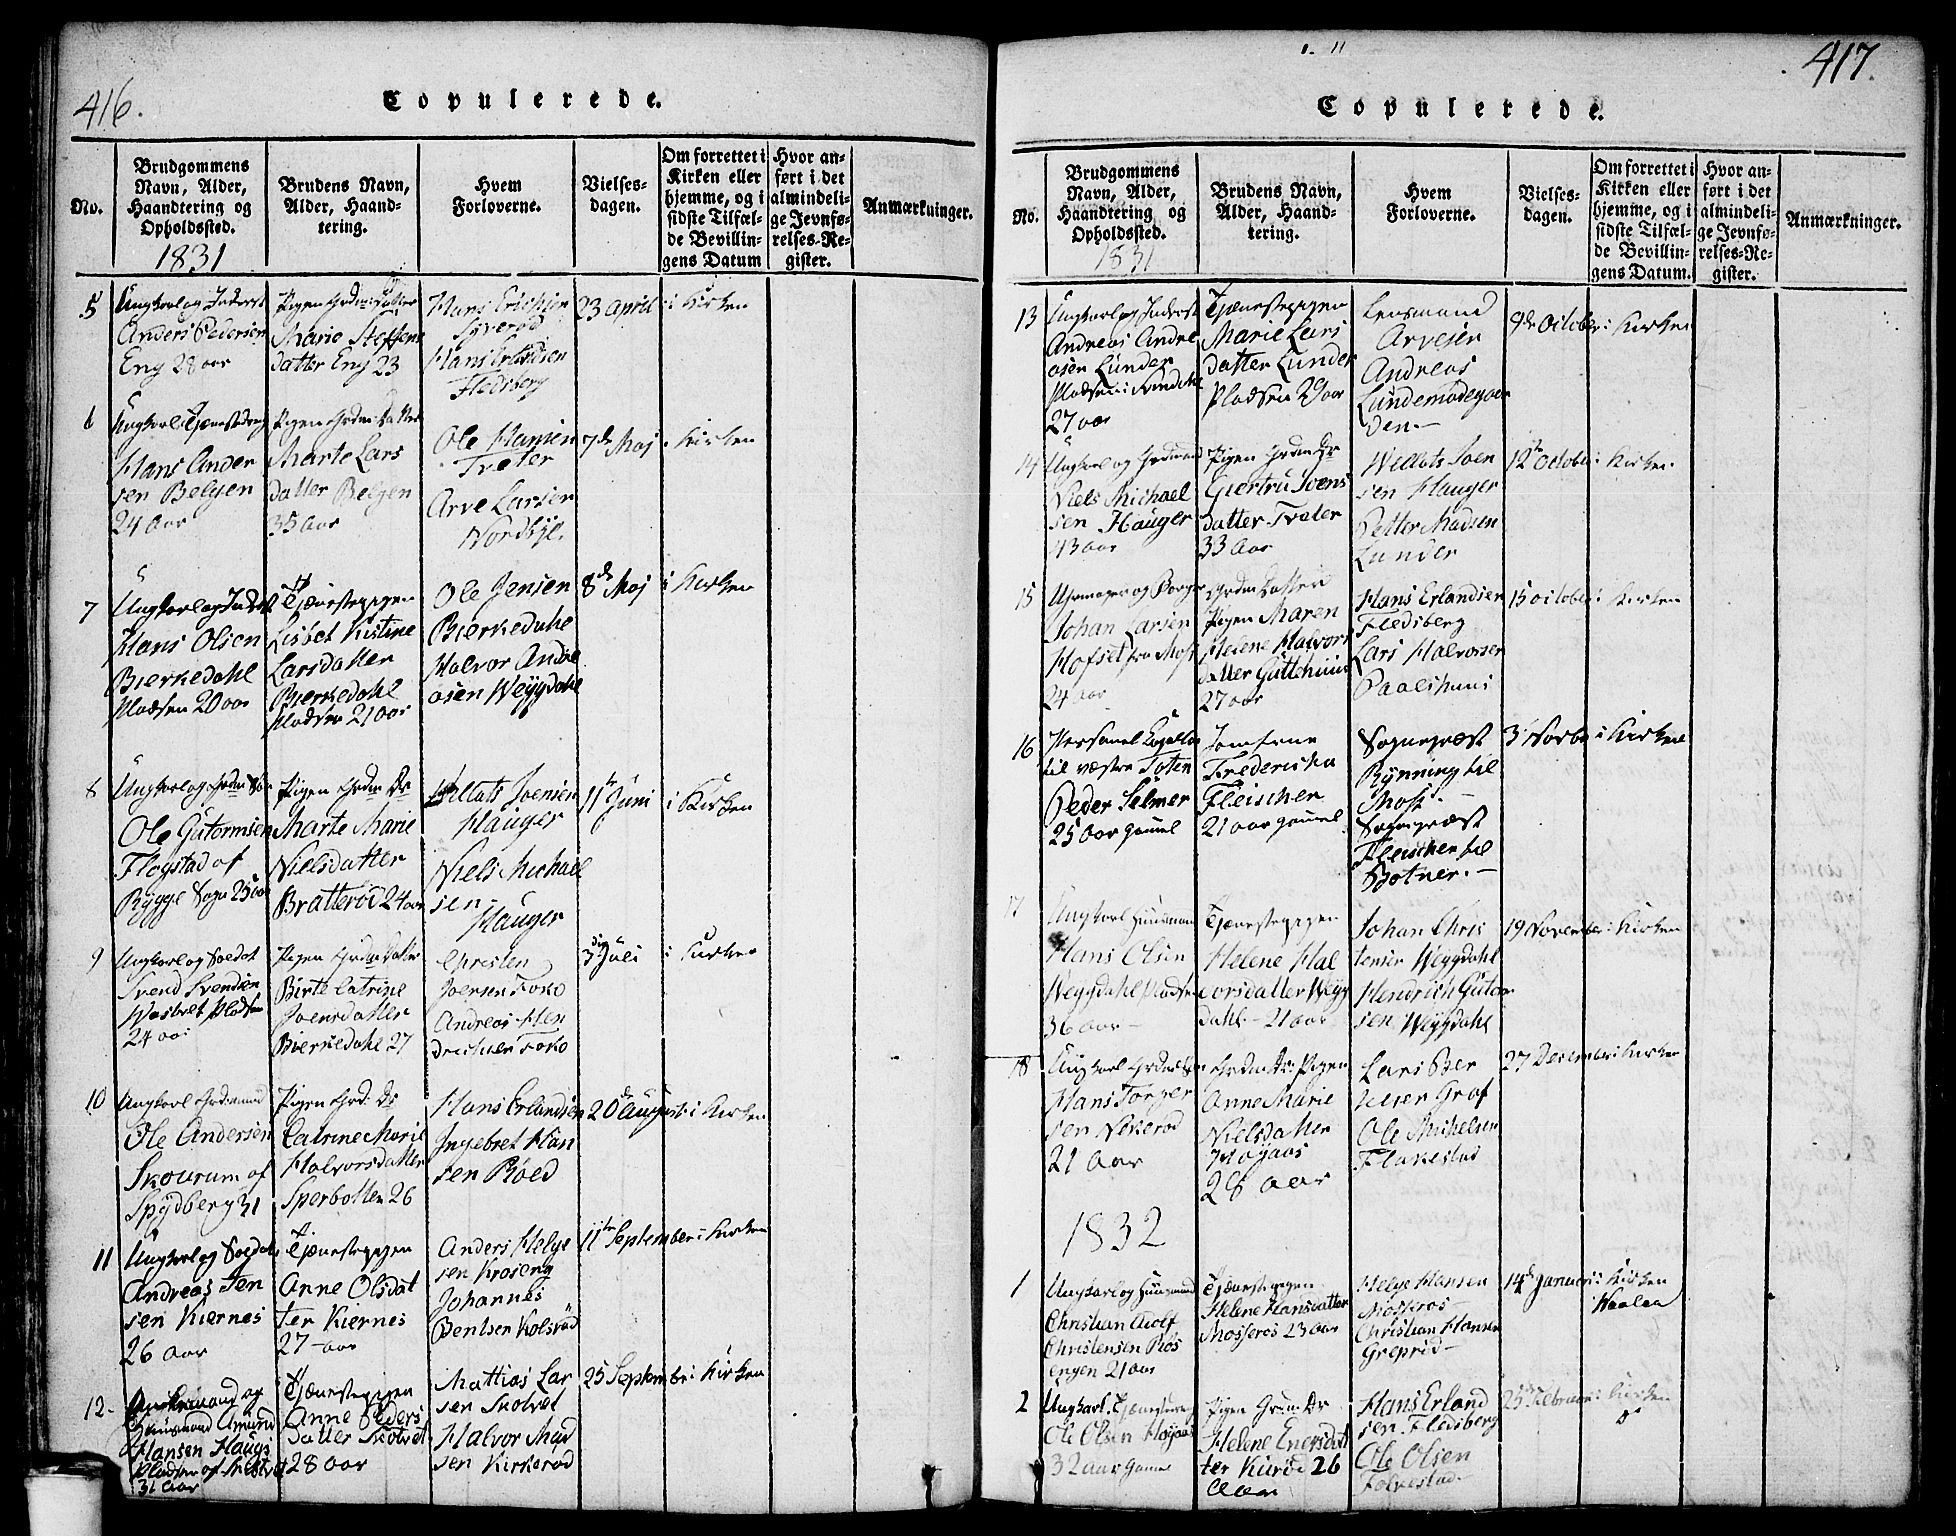 416.
Copulerede.
No.
Brudgommens
Navn, Alder,
Haandtering og
Opholdssted.
1831
Brudens Navn,
Alder, Haand-
tering.
Hvem
Forloverne.
Vielses-
dagen.
Om forrettet i
Kirken eller
hjemme, og i
sidste Tilfæl-
de Bevillin-
gens Datum
Hvor an-
ført i det
almindeli-
ge Jevnfø-
relses-Re-
gister.
Anmærkninger.
5
Ungkarl og Inderst
Anders Pedersen
Eng 28 aar
Marie Steffens
datter Eng 23
Hans Erichsen
Syverød
Hans Erlandsen
Fledsberg
23 April
i Kirken
6
Hans Ander
sen Belgen
24 Aar
Marte Lars
datter Belgen
35 Aar
Ole Hansen
Træter
Arve Larsen
Nordbye.
7de Maj
i Kirken
7
Ungkarl og Inderst
Hans Olsen
Bierkedahl
Pladsen 20 aar
Tjænestepigen
Lisbet Kistine
Larsdatter
Bierkedahl
Pladsen 21 aar
Ole Jensen
Bierkedahl
Halvor Andre
asen Weygdahl
8de Maj
i Kirken
8
Ole Gutormsen
Flogstad af
Rygge Sogn 25 aar
Pigen Grdm Dr
Marte Marie
Nielsdatter
Bratterød 24 aar
Hellats Joensen
Hauger
Niels Michael
sen
Hauger
11te Juni
i Kirken
9
Ungkarl og Soldat
Svend Svendsen
Pladsen
24 aar
Birte Catrine
Joensdatter
Bierkedahl 27
Christen
Joensen Foko
Andreas Hen
drichsen Foko
3die Juli
i Kirken
10
Ungkarl Grdmand
Ole Andersen
Skourum af
Spydberg 31
Pigen Grd: Dr
Catrine Marie
Halvorsdatter
Sperbotten 26
Hans Erlandsen
Ingebret Han
sen Røed
20de August
i Kirken
11
Ungkarl og Soldat
Andreas Jen
sen Kiernes
26 aar
Tjænestepigen
Anne Olsdat
ter Kiernes
27 aar
Anders Helge
sen Kroseng
Johannes
Bentsen Kolsrød
11te September
i Kirken
12.
Enkemand og
Huusmand Amund
Hansen Haugs
31 Aar
Tjænestepigen
Anne Peders
datter Skotvet
28 aar
Mattias Lar
sen Skotvet
Halvor Mad
sen Kirkerød
25 September
i Kirken
417.
Copulerede.
No.
Brudgommens
Navn, Alder,
Haandtering og
Opholdssted.
1831
Brudens Navn,
Alder, Haand-
tering.
Hvem
Forloverne.
Vielses-
dagen.
Om forrettet i
Kirken eller
hjemme, og i
sidste Tilfæl-
de Bevillin-
gens Datum.
Hvor an-
ført i det
almindeli-
ge Jevnfø-
relses-Re-
gister.
Anmærkninger.
13
Ungkarl og Inderst
Andreas Andre
asen Lunder
27 aar
Tjænestepigen
Marie Lars
datter Lunder
Pladsen 29 aar
Lensmand
Arvesen
Andreas
Lundemodegaar
den.
9de October
i Kirken
14
Ungkarl og Grdmand
Niels Michael
sen Hauger
43 aar
Pigen Grdm Dr
Giertru Ivens
datter Træter
33 Aar
Hellats Joen
sen Hauger
Petter Madsen
Lunder
12te October
i Kirken
15
Uhrmager og Borger
Johan Larsen
Hofset fra Moss
24 aar
Pigen Maren
Helene Halvors
datter Gutthuus
27 aar
Hans Erlandsen
Fledsberg
Lars Halvorsen
Paaleshuus
15 October
i Kirken
16
Personel Capellan
til væstre Toten
Peder Selmer
25 Aar gammel
Jomfrue
Fredericka
Fleischer
21 aar gammel
Sognepræst
Rynning til
Moss.
Sognepræst
Fleischer til
Botner.
3 Novbr
i Kirken
17
Ungkarl Huusmand
Hans Olsen
Weggdahl Pladsen
36 aar
Tjænestepigen
Helene Hal
vorsdatter Weyg
dahl 21 aar
Johan Chris
tensen Weygdahl
Hendrich Gutor
sen Weygdahl
19 November
i Kirken
18
Hans Torger
sen Nekerød
21 Aar
Grdm Dr: Pigen
Anne Marie
Nielsdatter
Høyaas
28 aar
Lars Ber
telsen Graf
Ole Michelsen
Flakestad
27 December
i Kirken
1832
1
Ungkarl og Huusmand
Christian Adolf
Christensen Røs
engen 21 aar
Tjænestepigen
Helene Hansdatter
Mosseros 23 aar
Helge Hansen
Mosseros
Christian Hansen
Greprød
14de Januari
i Kirken
Waaler
2
Ole Olsen Høyaas
32 aar gammel
Pigen Grdm: Dr
Helene Enersdat
ter Kurød 26
Aar
Hans Erland
sen Fledsberg
Ole Olsen
Folkestad
25 Februar
i Kirken